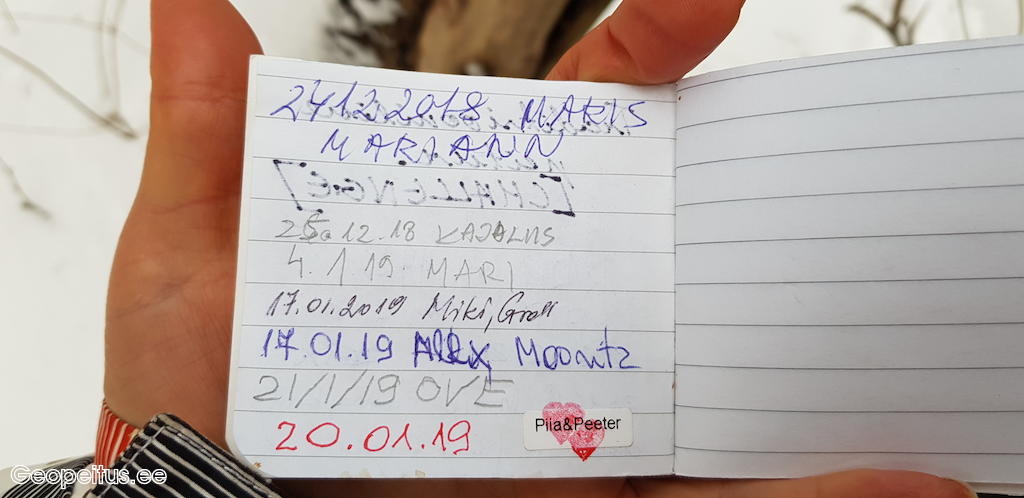 24.12.2018 MARIS
MARIANN
[CHALLENGE]
25.12.18 KAJALUS
4.1.19. MARI
17.01.2019 Miki, Groll
17.01.19 Alex, Moonitz
21/1/19 OVE
20.01.19 Piia&Peeter
Geopeitus.ee